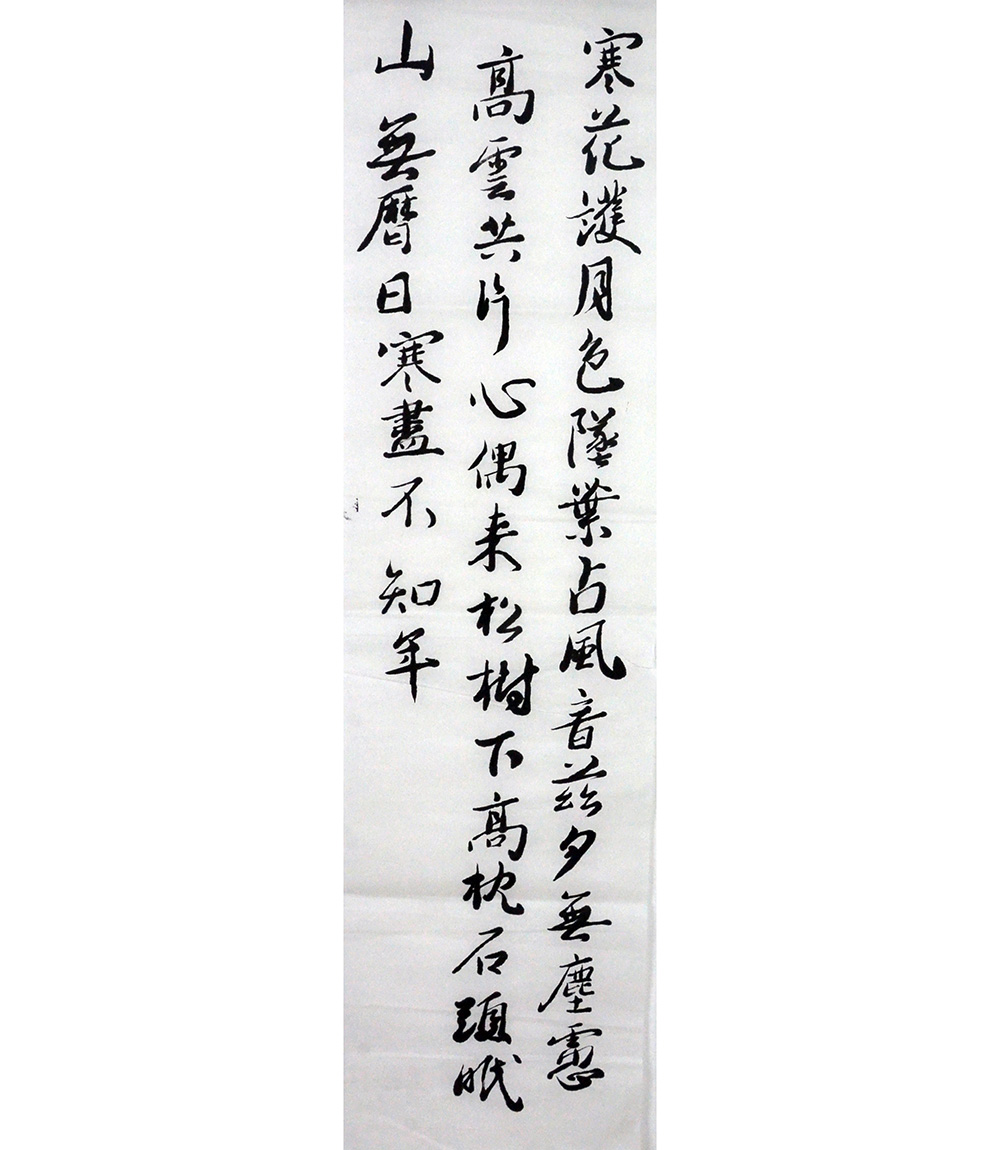 寒花護月色墜葉占風音茲夕無塵慮
高雲共片心偶来松樹下高枕石頭眠
山無曆日寒盡不知年